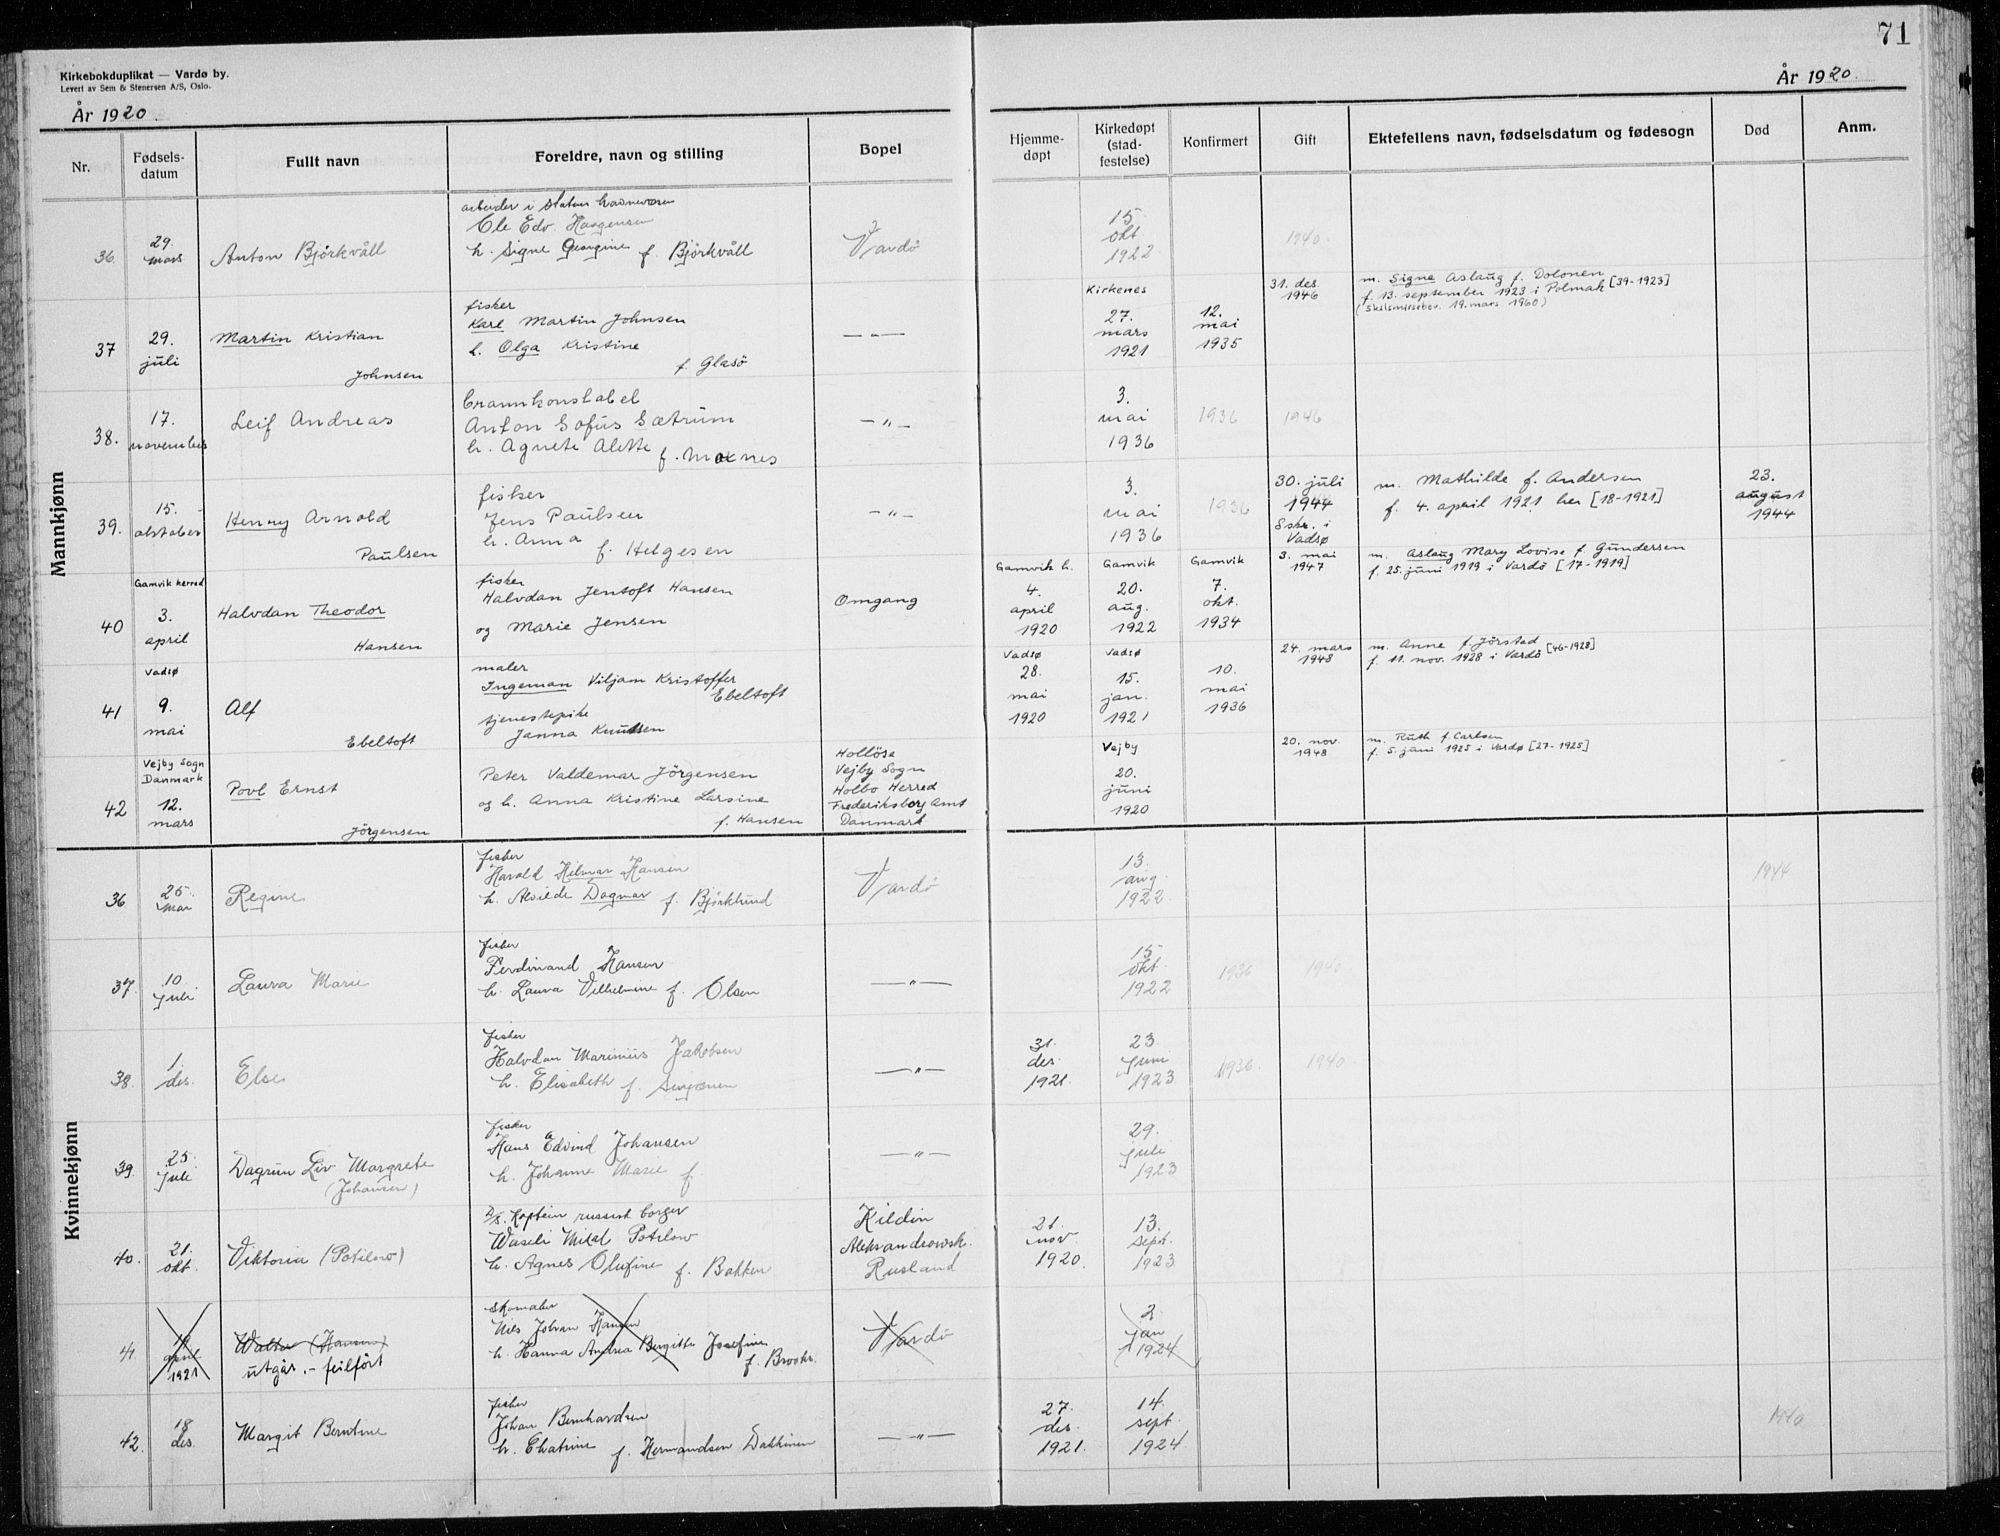 71
Kirkebokduplikat — Vardø by.
Levert av Sem & Stenersen A/S, Oslo.
År 1920.
År 1920.
Nr.
Fødsels-
datum
Fullt navn
Foreldre, navn og stilling
Bopel
Hjemme-
døpt
Kirkedøpt
(stad-
festelse)
Konfirmert
Gift
Ektefellens navn, fødselsdatum og fødesogn
Død
Anm.
Mannkjønn
36
29.
mars
Anton Björkvåll
arbeider i statens havnevæsen
Ole Edv.
h. Signe Georgine f. Björkvåll
Vardö
15
okt
1922
1940
37
29.
juli
Martin Kristian
Johnsen
fisker
Karl Martin Johnsen
h. Olga Kristine
f. Glasö
— " —
Kirkenes
27.
mars
1921
12.
mai
1935
31. des.
1946
m. Signe Aslaug f. Dolonen
f. 13. september 1923 i Polmak [39-1923]
(Skilsmissebev. 19. mars 1960)
38.
17.
november
Leif Andreas
brannkonstabel
Anton Sofus Sætrum
h. Agnete Alette f. Moxnes
— " —
3.
mai
1936
1936
1946
39.
15.
oktober
Henry Arnold
Paulsen
fisker
Jens Paulsen
h. Anna f. Helgesen
— " —
3.
mai
1936
1936
30. juli
1944
m. Mathilde f. Andersen
f. 4. april 1921 her [18-1921]
23.
august
1944
40
Gamvik herred
3.
april
Halvdan Theodor
Hansen
fisker
Halvdan Jentoft Hansen
og Marie Jensen
Omgang
Gamvik h.
4.
april
1920
Gamvik
20.
aug.
1922
Gamvik
7.
okt.
1934
Sskr. i
Vadsø
3. mai
1947
m. Aslaug Mary Lovise f. Gundersen
f. 25. juni 1919 i Vardö [17-1919]
41
Vadsø
9.
mai
Alf
Ebeltoft
maler
Ingeman Viljam Kristoffer
Ebeltoft
tjenestepike
Janna Knutsen
Vadsø
28.
mai
1920
Vadsø
15.
jan.
1921
10.
mai
1936
24. mars
1948
m. Anne f. Jörstad
f. 11. nov. 1928 i Vardö [46-1928]
42
Vejby Sogn
Danmark
12.
mars
Povl Ernst
Jörgensen
Peter Valdemar Jörgensen
og h. Anna Kristine Larsine
f. Hansen
Hollöse
Vejby Sogn
Holbo Herred
Frederiksborg Amt
Danmark
Vejby
20.
juni
1920
20. nov.
1948
m. Ruth f. Carlsen
f. 5. juni 1925 i Vardø [27-1925]
Kvinnekjønn
36
25.
Mai
Regine
fisker
Harald Hilmar Hansen
h. Alvilde Dagmar f. Björklund
Vardö
13.
aug.
1922
1944
37.
10
Juli
Laura Marie
fisker
Ferdinand Hansen
h. Laura Vilhelmine f. Olsen
— " —
15
okt.
1922
1936
1940
38.
1.
des.
Else
fisker
Halvdan Marinius Jakobsen
h. Elisabeth f.
— " —
31.
des.
1921.
23
Juni
1923
1936
1940
39.
25.
Juli
Dagrun Liv Margrete
(Johansen)
fisker
Hans Edvind Johansen
h. Johanne Marie f
— " —
29.
Juli
1923
40.
21.
okt.
Viktoria (Potilow)
D/S. Kaptein russisk borger
Wasili Potilow
h. Agnes Olufine f. Bakken
Kildin
Aleksandrowsk.
Rusland
21.
nov
1920.
13.
Sept.
1923
41
19
april
1921
Walter (Hansen)
utgår.- feilfört
skomaker
Nils Johan Hansen
h. Hanna Andrea Bergitte Josefine
f.
Vardö
2.
Jan
1924
42.
18
des.
Margit Berntine
fisker
Johan Bernhardsen
h. f. Hermandsen Dakkinen
— " —
27.
des.
1921.
14.
sept.
1924
1940